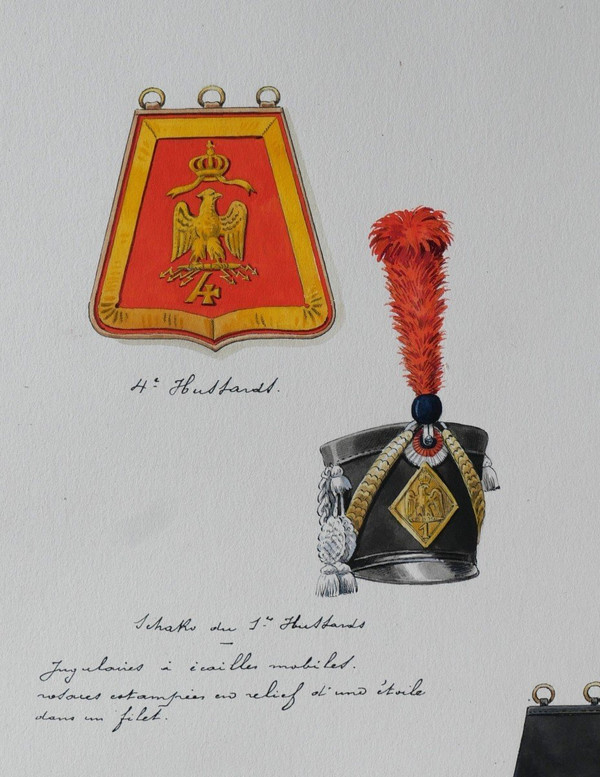 4
4e Hussards.
1
Schako du 1er Hussards
Jugulaires à écailles mobiles.
rosaces estampées en relief d'une étoile
dans un filet.